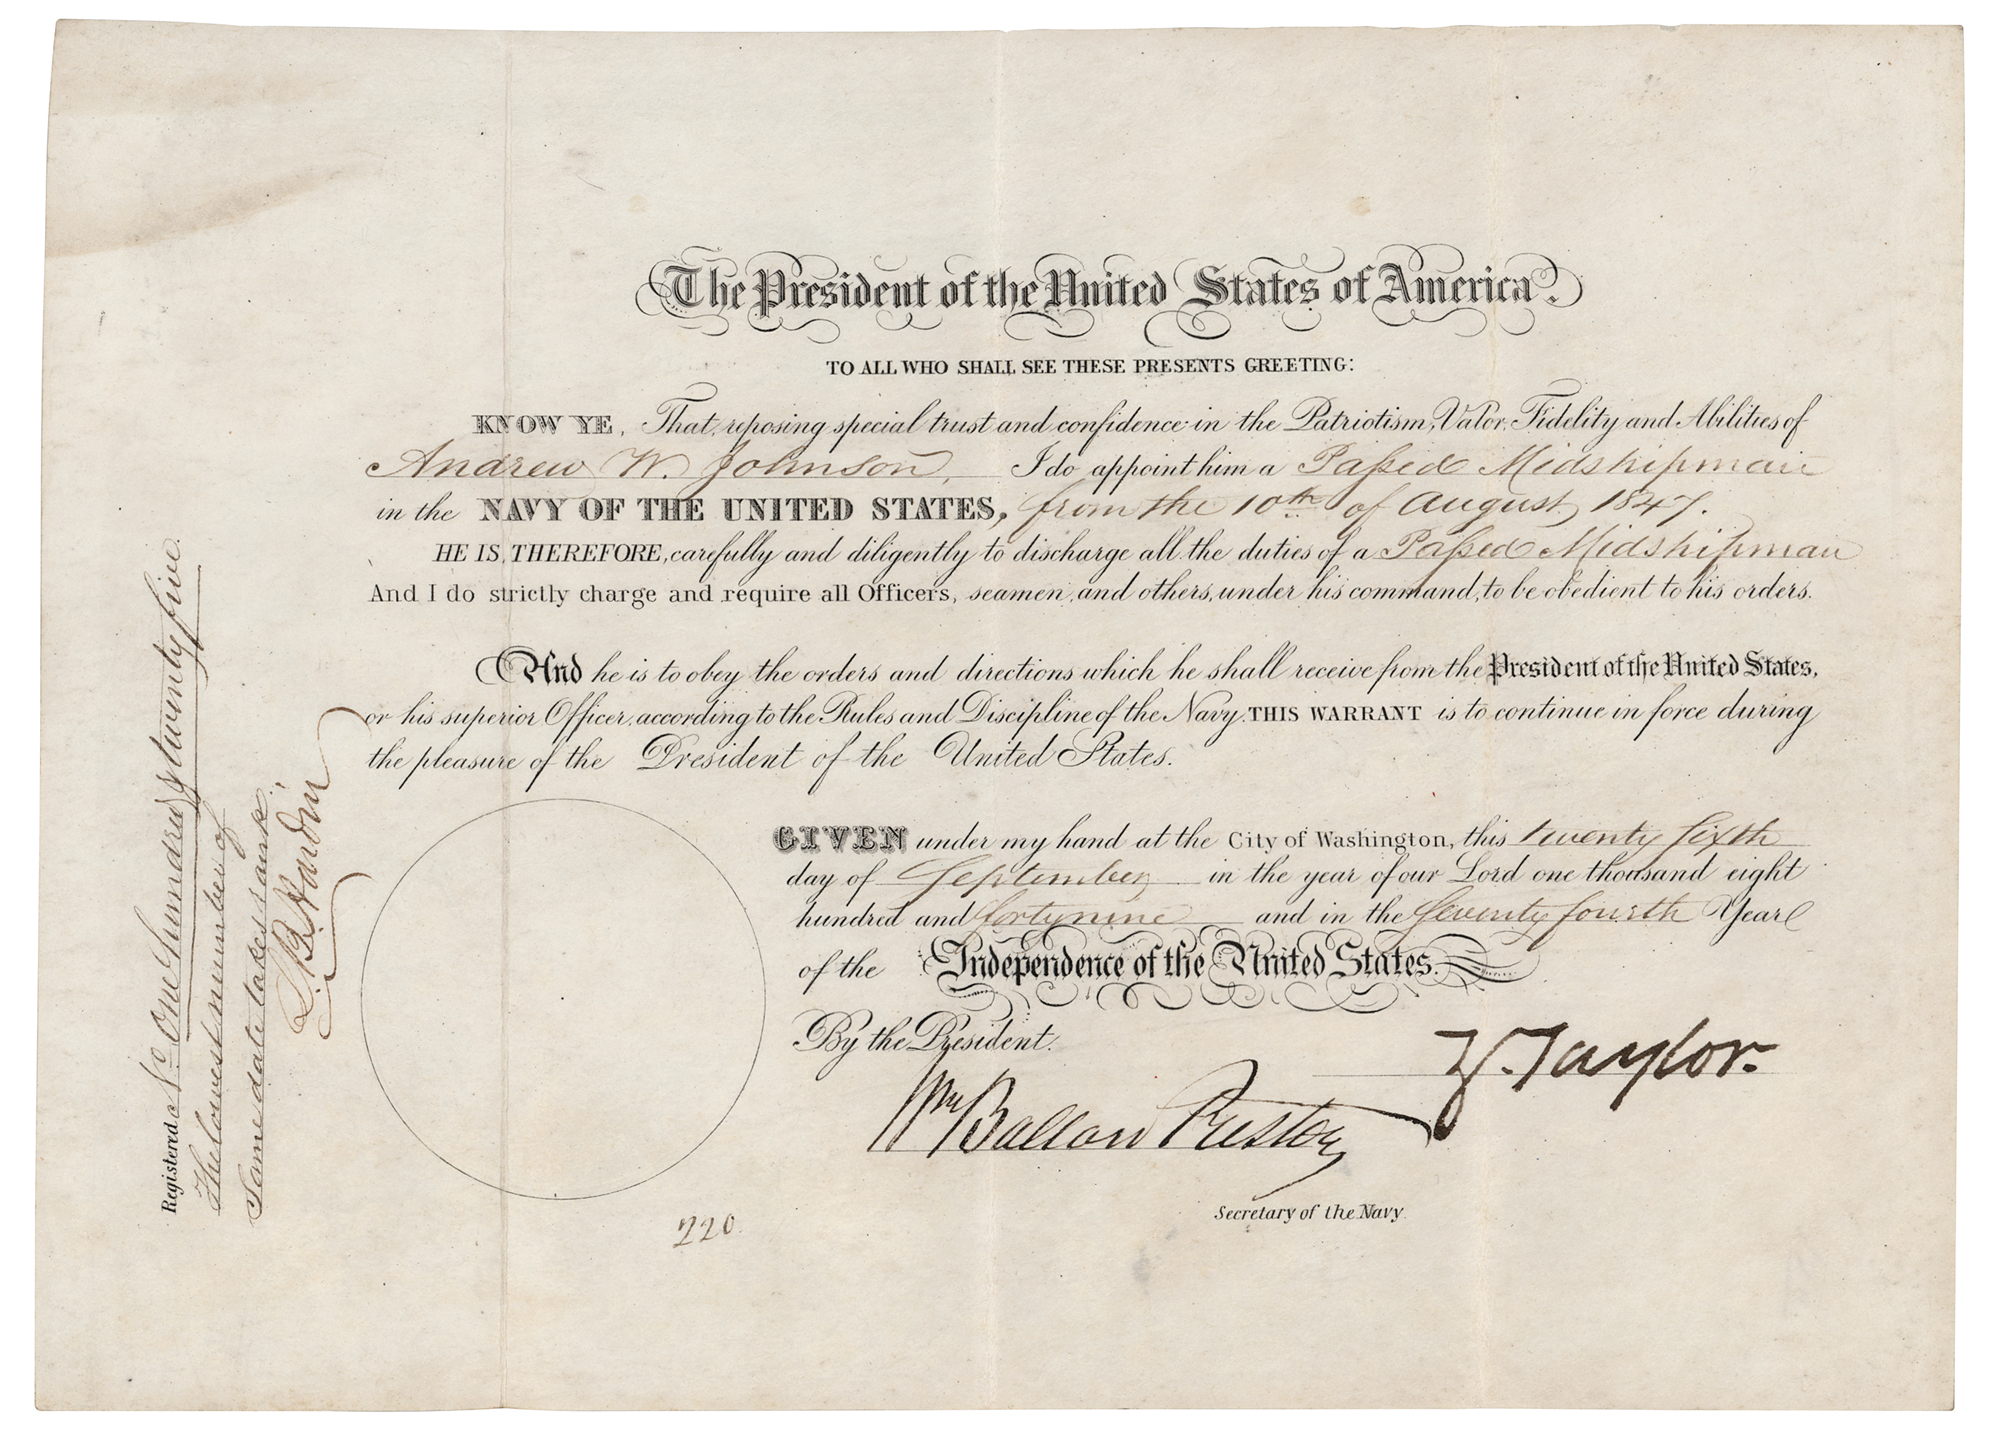 The President of the United States of America.
TO ALL WHO SHALL SEE THESE PRESENTS GREETING:
KNOW YE, That, reposing special trust and confidence in the Patriotism, Valor, Fidelity and Abilities of
Andrew W. Johnson, I do appoint him a Paſsed Midshipman
in the NAVY OF THE UNITED STATES, from the 10th of August, 1847.
HE IS, THEREFORE, carefully and diligently to discharge all the duties of a Paſsed Midshipman
And I do strictly charge and require all Officers, seamen, and others, under his command, to be obedient to his orders.
And he is to obey the orders and directions which he shall receive from the President of the United States,
or his superior Officer, according to the Rules and Discipline of the Navy. THIS WARRANT is to continue in force during
the pleasure of the President of the United States.
GIVEN under my hand at the City of Washington, this twenty sixth
day of September in the year of our Lord one thousand eight
hundred and forty nine and in the Seventy fourth Year
of the Independence of the United States.
By the President.
Z. Taylor.
Wm Ballard Preston
Secretary of the Navy
220.
Registered No. One Hundred & twenty five.
The lowest number of
Same date takes rank.